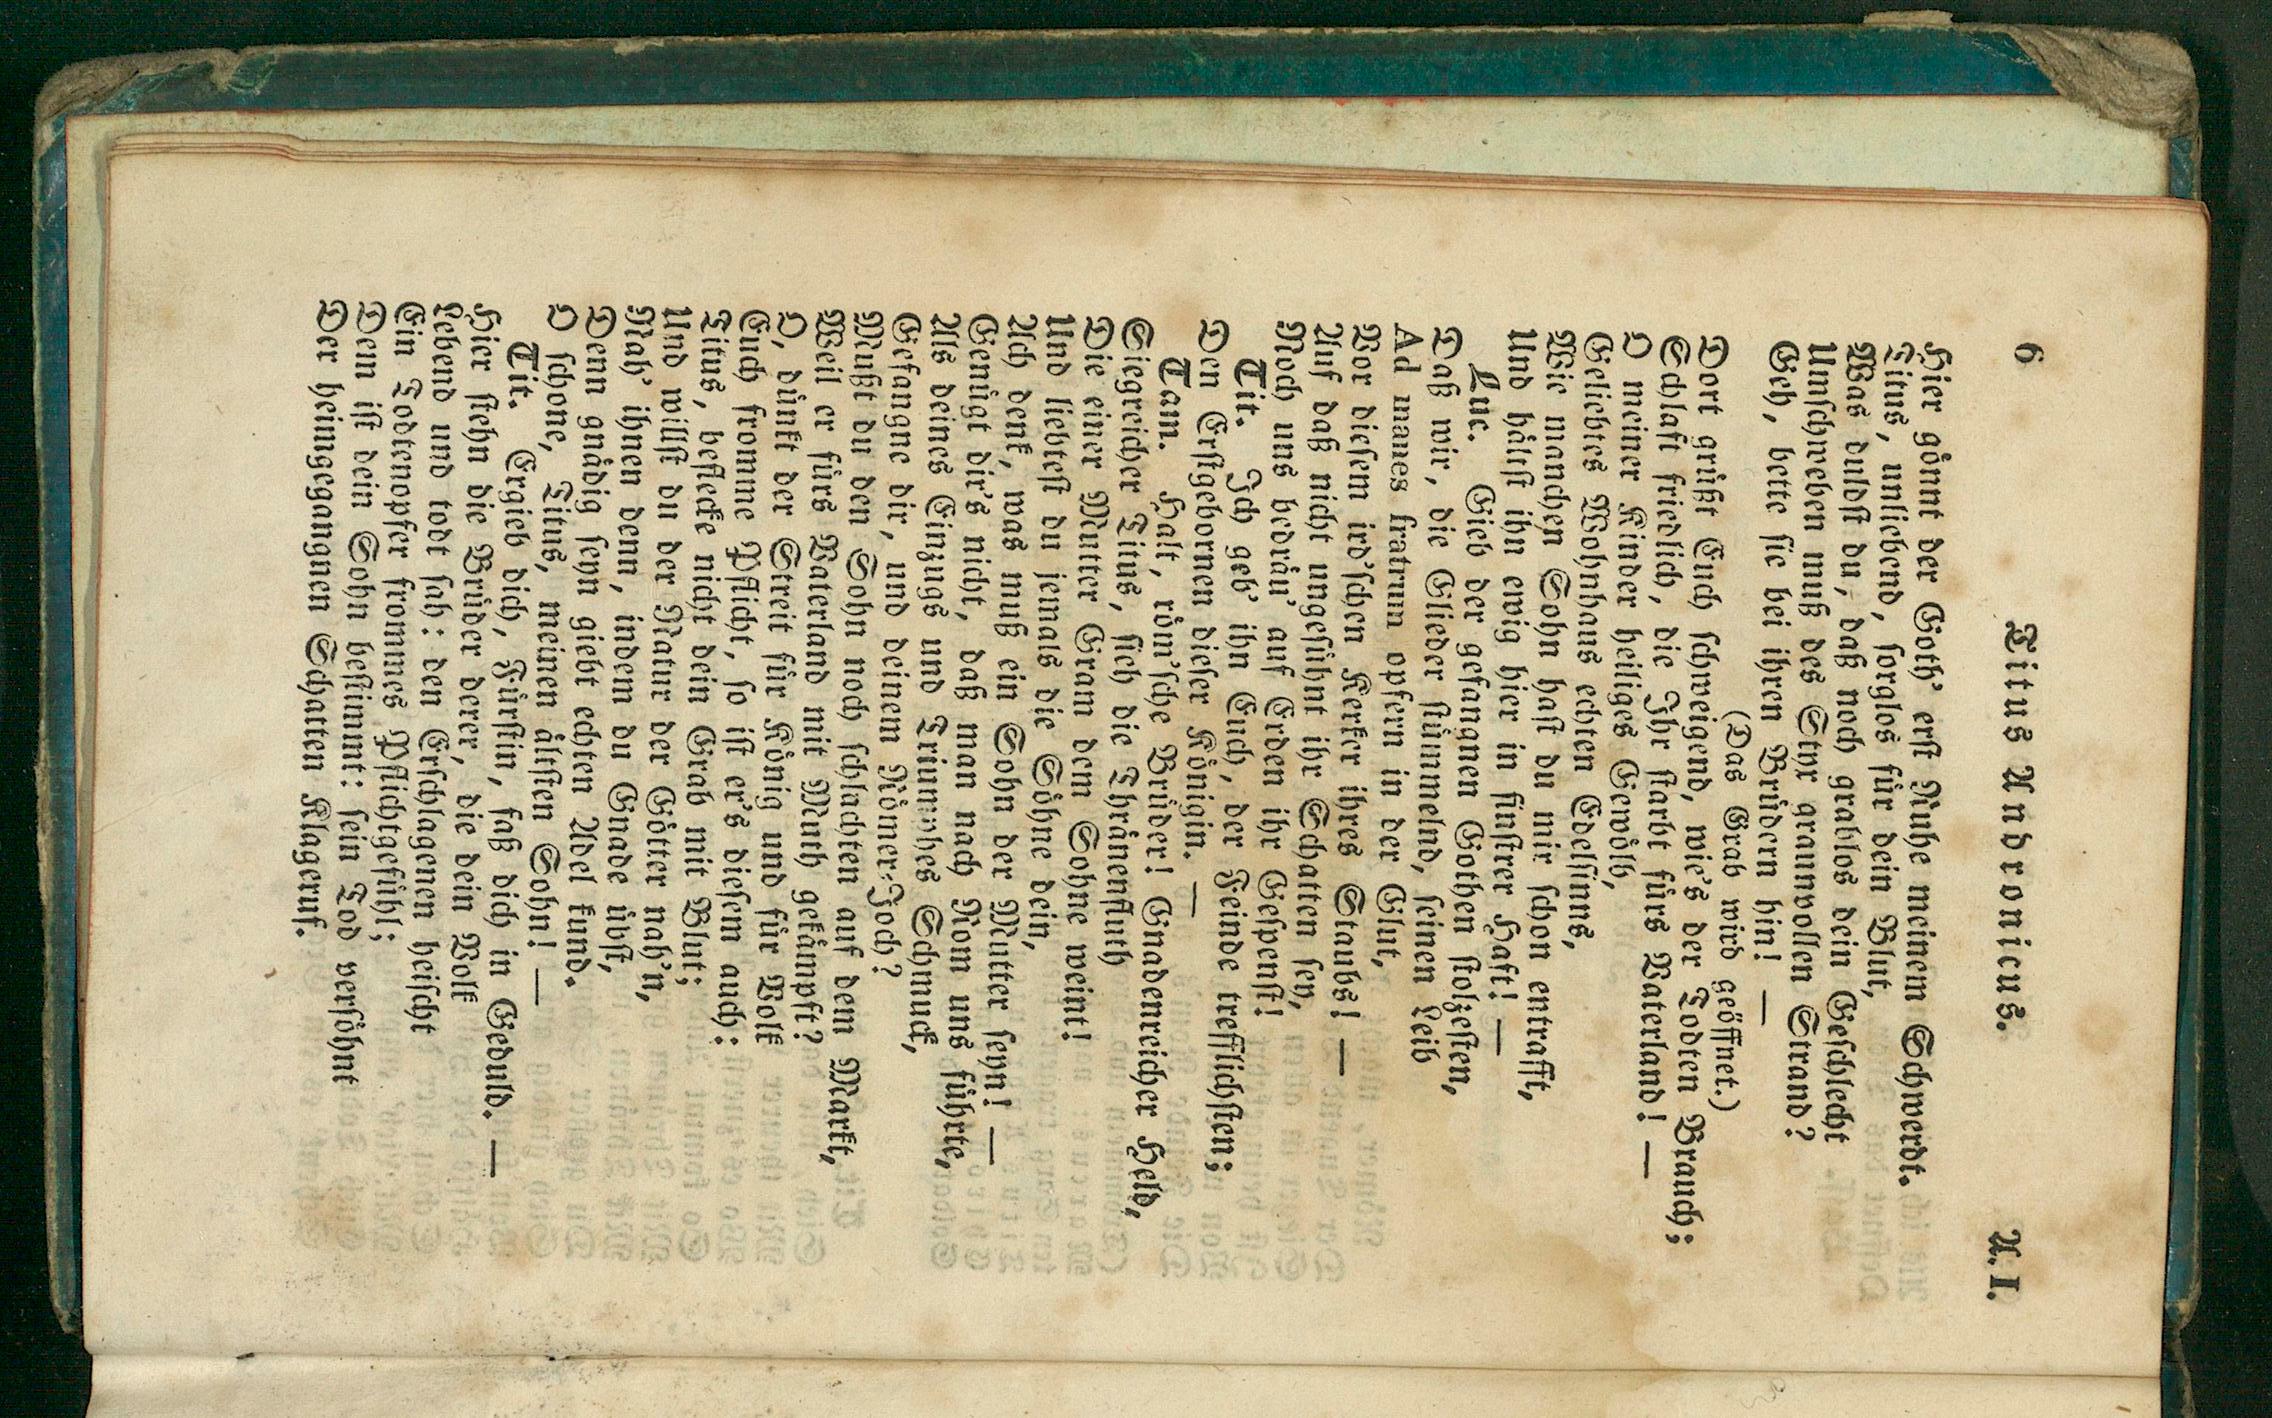 6 Titus Andronicus. A. I.
Hier gönnt der Goth' erst Ruhe meinem Schwerdt.
Titus, unliebend, sorglos für dein Blut,
Was duldst du, daß noch grablos dein Geschlecht
Umschweben muß des Styx graunvollen Strand?
Geh, bette sie bei ihren Brüdern hin! —
(Das Grab wird geöffnet.)
Dort grüßt Euch schweigend, wie's der Todten Brauch;
Schlaft friedlich, die Ihr starbt fürs Vaterland! —
O meiner Kinder heiliges Gewölb,
Geliebtes Wohnhaus echten Edelsinns,
Wie manchen Sohn hast du mir schon entrafft,
Und hältst ihn ewig hier in finstrer Haft! —
Luc. Gieb der gefangnen Gothen stolzesten,
Daß wir, die Glieder stümmelnd, seinen Leib
Ad manes fratrum opfern in der Glut,
Vor diesem ird'schen Kerker ihres Staubs! —
Auf daß nicht ungesühnt ihr Schatten sey,
Noch uns bedräu' auf Erden ihr Gespenst!
Tit. Ich geb' ihn Euch, der Feinde trefflichsten;
Den Erstgebornen dieser Königin. —
Tam. Halt, röm'sche Brüder! Gnadenreicher Held,
Siegreicher Titus, sieh die Thränenfluth
Die einer Mutter Gram dem Sohne weint!
Und liebtest du jemals die Söhne dein,
Ach denk, was muß ein Sohn der Mutter seyn! —
Genügt dir's nicht, daß man nach Rom uns führte,
Als deines Einzugs und Triumphes Schmuck,
Gefangne dir, und deinem Römer-Joch?
Mußt du den Sohn noch schlachten auf dem Markt,
Weil er fürs Vaterland mit Muth gekämpft?
O, dünkt der Streit für König und für Volk
Euch fromme Pflicht, so ist er's diesem auch:
Titus, beflecke nicht dein Grab mit Blut;
Und willst du der Natur der Götter nah'n,
Nah' ihnen denn, indem du Gnade übst,
Denn gnädig seyn giebt echten Adel kund.
O schone, Titus, meinen ältsten Sohn! —
Tit. Ergieb dich, Fürstin, faß dich in Geduld. —
Hier stehn die Brüder derer, die dein Volk
Lebend und todt sah: den Erschlagenen heischt
Ein Todtenopfer frommes Pflichtgefühl;
Dem ist dein Sohn bestimmt: sein Tod versöhnt
Der heimgegangnen Schatten Klageruf.